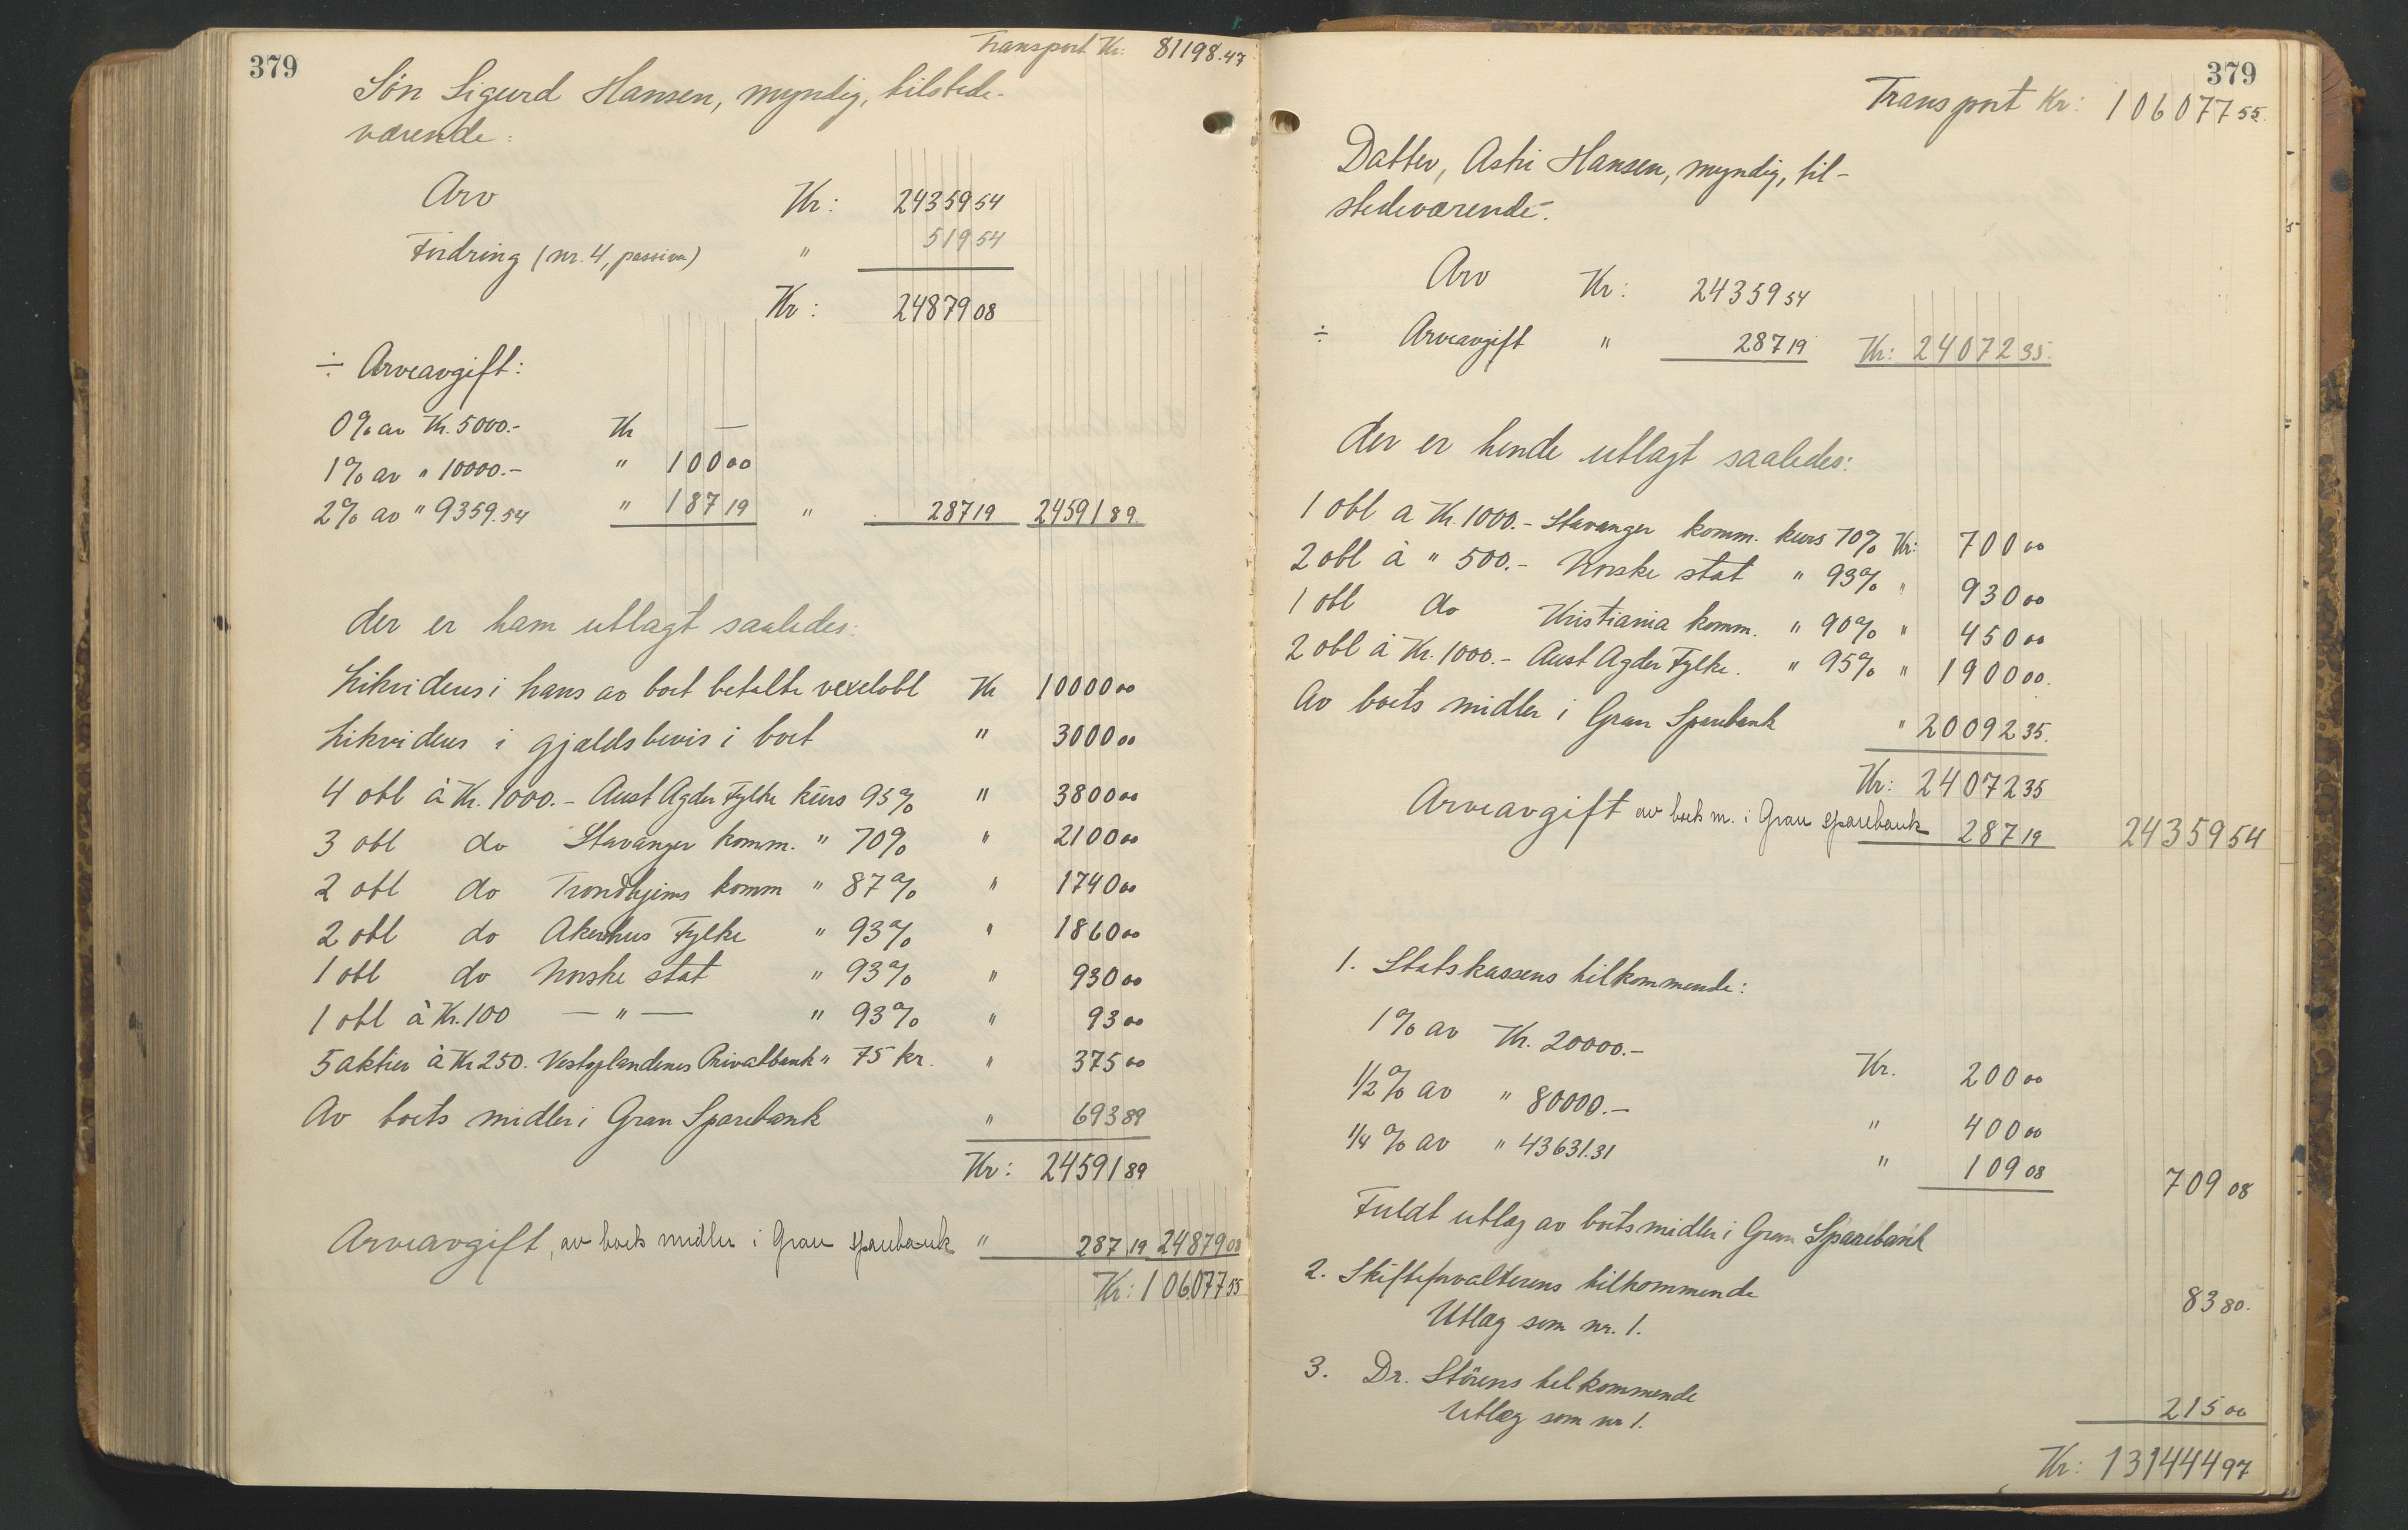 379
Transport Kr: 81198.47
Søn Sigurd Hansen, myndig, tilstede-
værende:
Arv Kr: 24359 54
Fordring (nr. 4, passiva) " 519 54
Kr: 24879 08
÷ Arveavgift:
0% av Kr. 5000.- Kr —
1% av " 10000.- " 100 00
2% av " 9359.54 " 187 19 " 287 19 24591 89
der er ham utlagt saaledes:
Likvideres i hans av boet betalte vexelobl Kr 10000 00
Likvideres i gjældsbevis i boet " 3000 00
4 obl à Kr. 1000.- Aust Agder Fylke kurs 95% " 3800 00
3 obl do Stavanger komm. " 70% " 2100 00
2 obl do Trondhjems komm " 87% " 1740 00
2 obl do Akershus Fylke " 93% " 1860 00
1 obl do Norske stat " 93% " 930 00
1 obl à Kr. 100 — " — " 93% " 93 00
5 aktier à Kr 250. Vestoplandenes Privatbank " 75 kr. " 375 00
Av boets midler i Gran Sparebank " 693 89
Kr: 24591 89
Arveavgift, av boets midler i Gran sparebank " 287 19 24879 08
Kr: 106077 55
379
Transport Kr: 106077 55
Datter, Astri Hansen, myndig, til-
stedeværende.
Arv Kr: 24359 54
÷ Arveavgift " 287 19 Kr: 24072 35
der er hende utlagt saaledes:
1 obl a Kr. 1000.- Stavanger komm. kurs 70% Kr: 700 00
2 obl à " 500.- Norske stat " 93% " 930 00
1 obl do Kristiania komm. " 90% " 450 00
2 obl à Kr. 1000.- Aust Agder Fylke. " 95% " 1900 00
Av boets midler i Gran Sparebank " 20092 35
Kr: 24072 35
Arveavgift av boets m. i Gran sparebank 287 19 24359 54
1. Statskassens tilkommende:
1% av Kr. 20000.- Kr. 200 00
1/2% av " 80000.- " 400 00
1/4% av " 43631.31 " 109 08 709 08
Fuldt utlæg av boets midler i Gran Sparebank
2. Skifteforvalterens tilkommende 83 80.
Utlæg som nr. 1.
3. Dr. Störens tilkommende
Utlæg som nr 1. 215 00
Kr: 131444 97